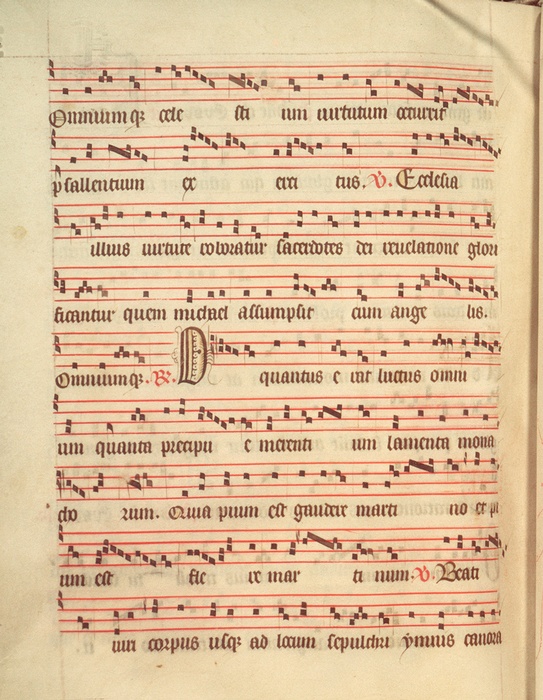 Omniumq; cele sti um virtutum occurrit
psallentium ex erci tus. V. Ecclesia
illius virtute coloratur sacerdotes dei revelatione glori
ficantur quem michael assumpsit cum ange lis.
Omniumq; R. O quantus e rat luctus omni
um quanta precipu e merenti um lamenta mona
cho rum. Quia pium est gaudere marti no et pi
um est fle re mar ti num. V. Beati
viri corpus usq; ad locum sepulchri ymnis canora